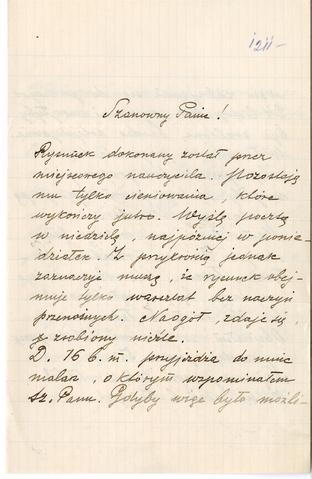 1211-
Szanowny Panie!
Rysunek dokonany został przez
miejscowego nauczyciela. Pozostają
mu tylko cieniowania, które
wykończy jutro. Wyślę pocztą
w niedzielę, najpóźniej w ponie-
działek. Z przykrością jednak
zaznaczyć muszę, że rysunek obej-
muje tylko warsztat bez naczyń
przenośnych. Naogół, zdaje się,
zrobiony nieźle.
D. 16 b. m. przyjeżdża do mnie
malarz, o którym wspominałem
Sz. Panu. Gdyby więc było możli-